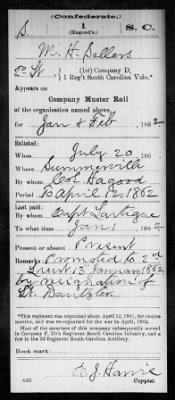 Confederate.
S. 1 S. C.
(Hagood's).
M. H. Sellers
2 Lt, (1st) Company D,
1 Reg't South Carolina Vols.*
Appears on
Company Muster Roll
of the organization named above,
for Jan & Feb, 1862
Enlisted:
When July 20, 186
Where Summerville
By whom Col. Hagood
Period To April 12, 1862
Last paid:
By whom Capt Lartigue
To what time Jan 1, 1862
Present or absent Present
Remarks: Promoted to 2d
Lieut 13 January 1862
by resignation of
Lt.
*This regiment was organized about April 12, 1861, for twelve
months, and was re-organized for the war in April, 1862.
Most of the members of this company subsequently served in
Company F, 25th Regiment South Carolina Infantry, and a
few in the 2d Regiment South Carolina Artillery.
Book mark:
(642) E. J.
Copyist.